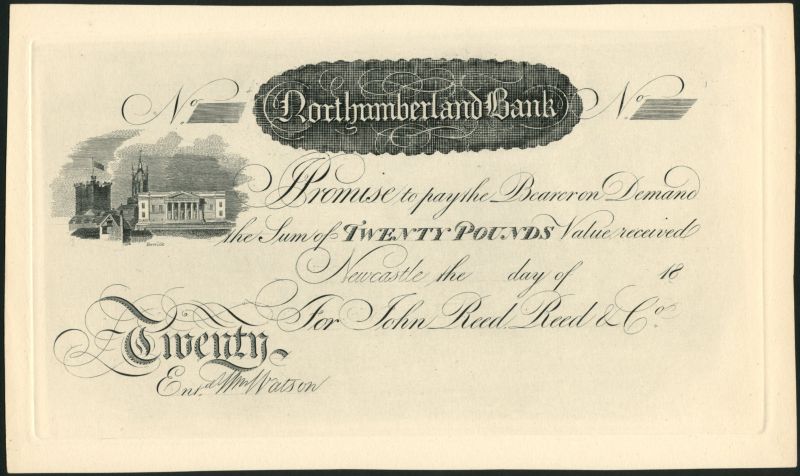 No. Northumberland Bank No.
I Promise to pay the Bearer on Demand
the Sum of TWENTY POUNDS Value received
Newcastle the day of 18
For John Reed, Reed & Co.
£ Twenty
Entd. Wm Watson